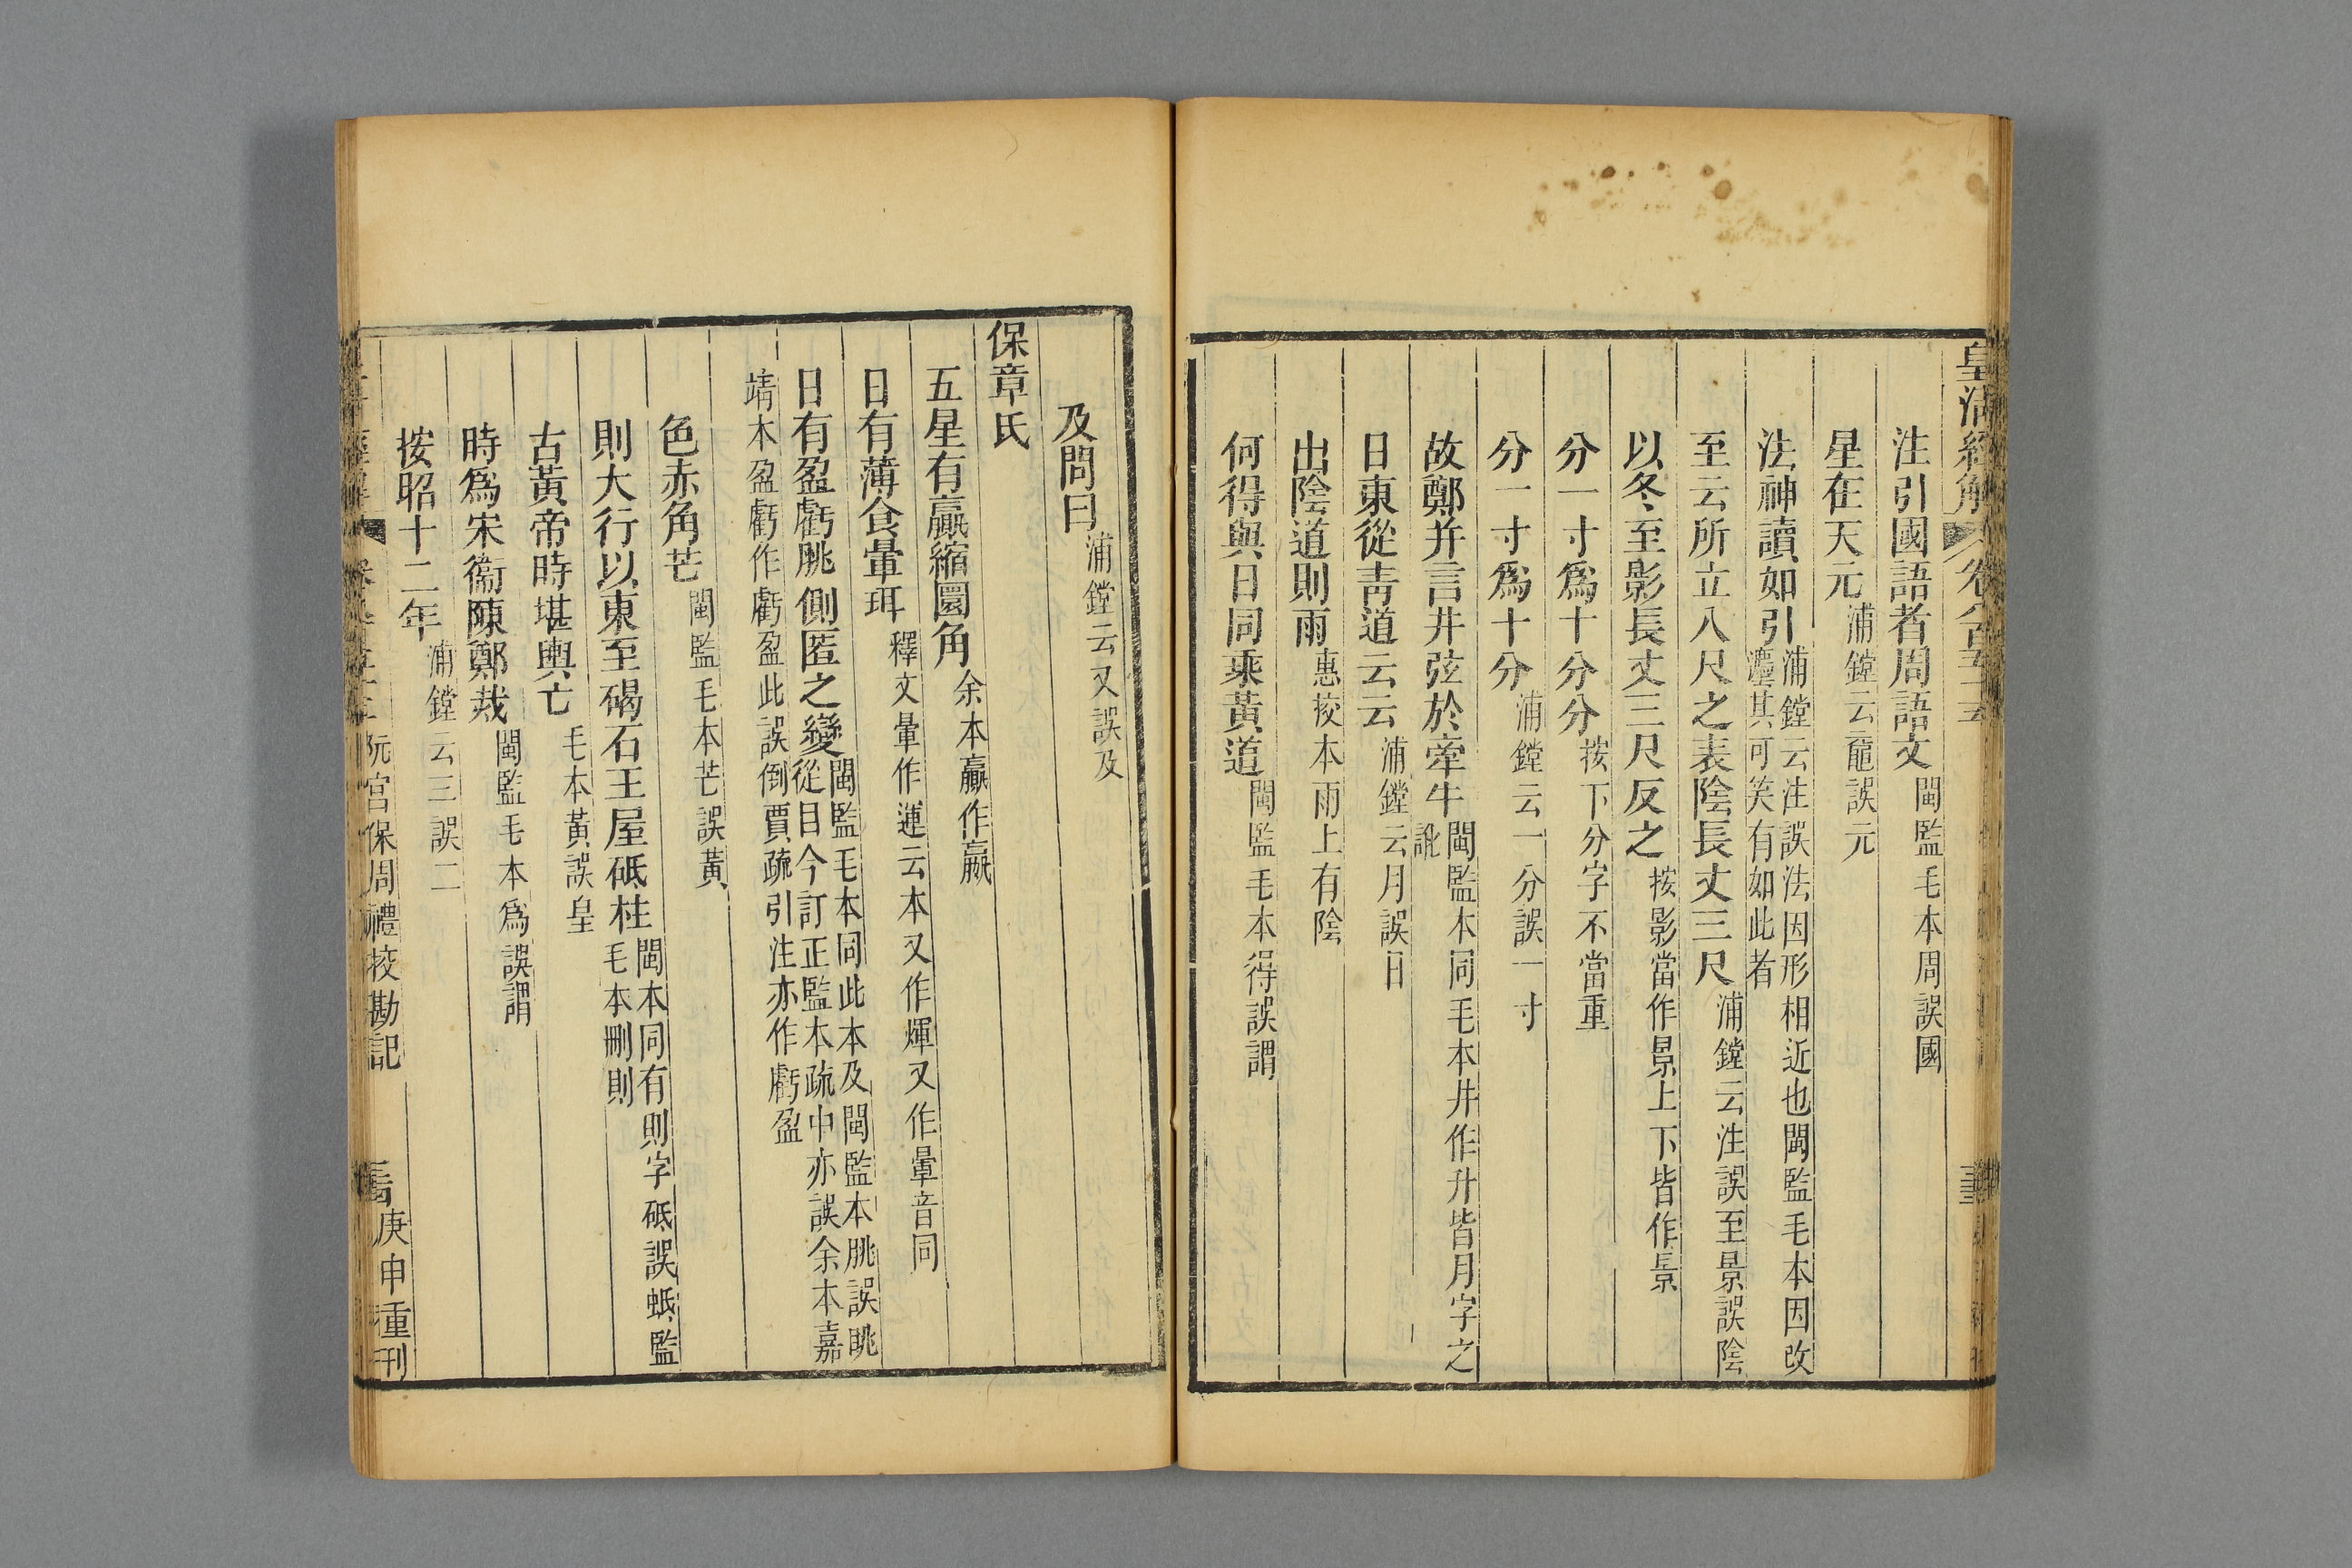 皇清經解 卷八百五十三
注引國語者周語文閩監毛本周誤國
星在天元浦鏜云黿誤元
法神讀如引浦鏜云注誤法因形相近也閩監毛本因改瀍其可笑有如此者
至云所立八尺之表陰長丈三尺浦鏜云注誤至景誤陰
以冬至影長丈三尺反之按影當作景上下皆作景
分一寸爲十分分按下分字不當重
分一寸爲十分浦鏜云一分誤一寸
故鄭并言井弦於牽牛閩監本同毛本井作升皆月字之訛
日東從青道云云浦鏜云月誤日
出陰道則雨惠挍本雨上有陰
何得與日同乘黃道閩監毛本得誤謂
及問曰浦鏜云又誤及
保章氏
五星有贏縮圜角余本贏作嬴
日有薄食暈珥釋文暈作運云本又作煇又作暈音同
日有盈虧朓側匿之變閩監毛本同此本及閩監本朓誤眺從目今訂正監本疏中亦誤余本嘉
靖本盈虧作虧盈此誤倒賈疏引注亦作虧盈
色赤角芒閩監毛本芒誤黃
則大行以東至碣石王屋砥柱閩本同有則字砥誤蚔監毛本刪則
古黃帝時堪輿亡毛本黃誤皇
時爲宋衞陳鄭烖閩監毛本爲誤謂
按昭十二年浦鏜云三誤二
阮宮保周禮挍勘記 庚申重刊